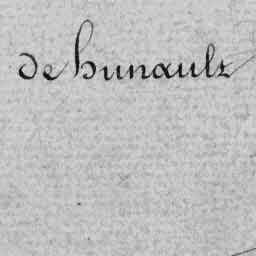 de hunault